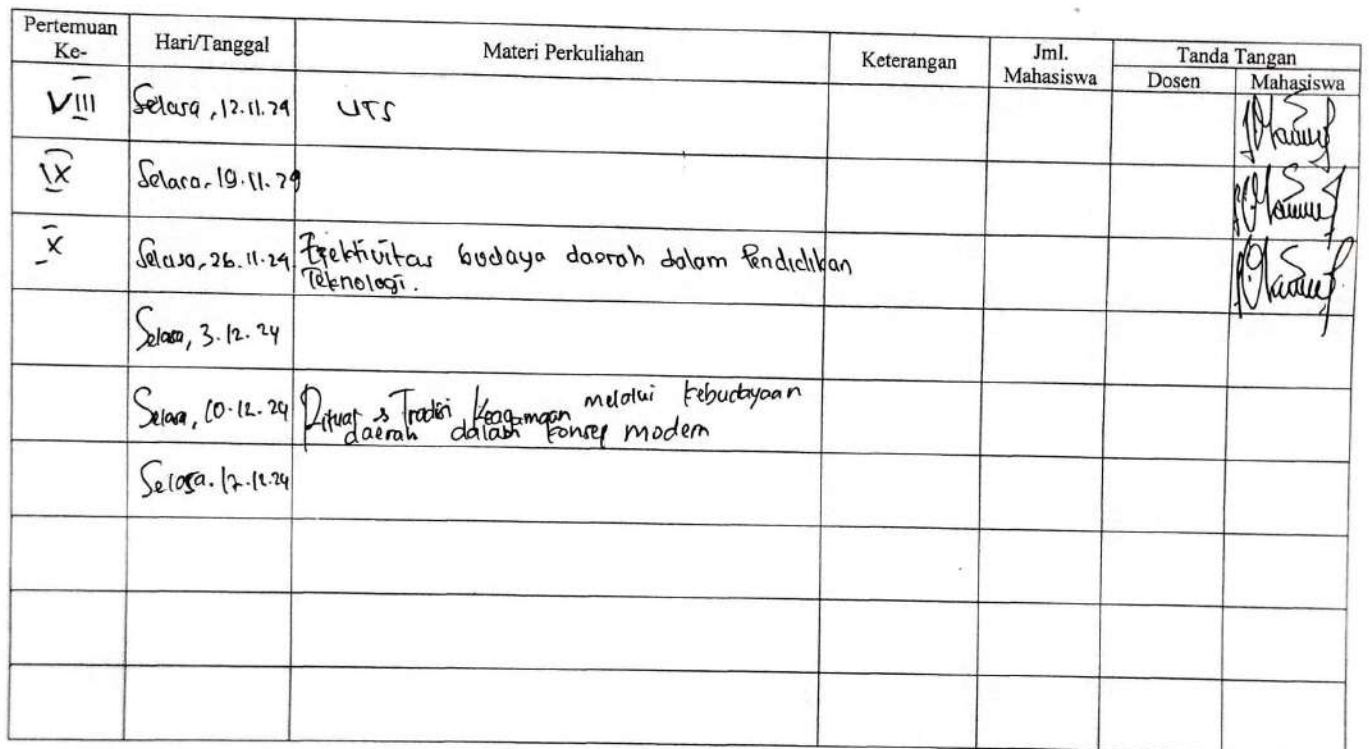 Pertemuan Ke- Hari/Tanggal Materi Perkuliahan Keterangan Jml. Mahasiswa Tanda Tangan
Dosen Mahasiswa
VIII Selasa, 12.11.24 UTS
IX Selasa, 19.11.24
X Selasa, 26.11.24 Efektivitas budaya daerah dalam Pendidikan
Teknologi.
Selasa, 3.12.24
Selasa, 10.12.24 Ritual & Tradisi keagamaan melalui kebudayaan
daerah dalam konsep modern
Selasa. 17.12.24